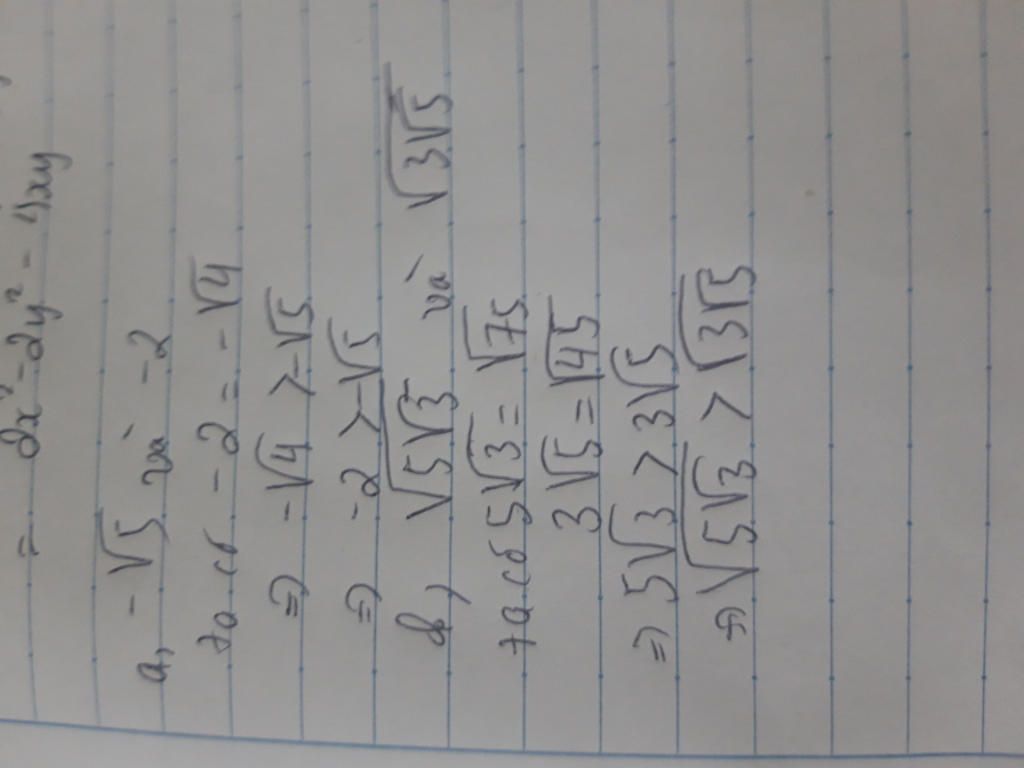 = 2x² - 2y² - 4xy
a, -√5 và -2
Ta có -2 = -√4
=> -√4 > -√5
=> -2 > -√5
b, √(5√3) và √(3√5)
Ta có 5√3 = √75
3√5 = √45
=> 5√3 > 3√5
=> √(5√3) > √(3√5)